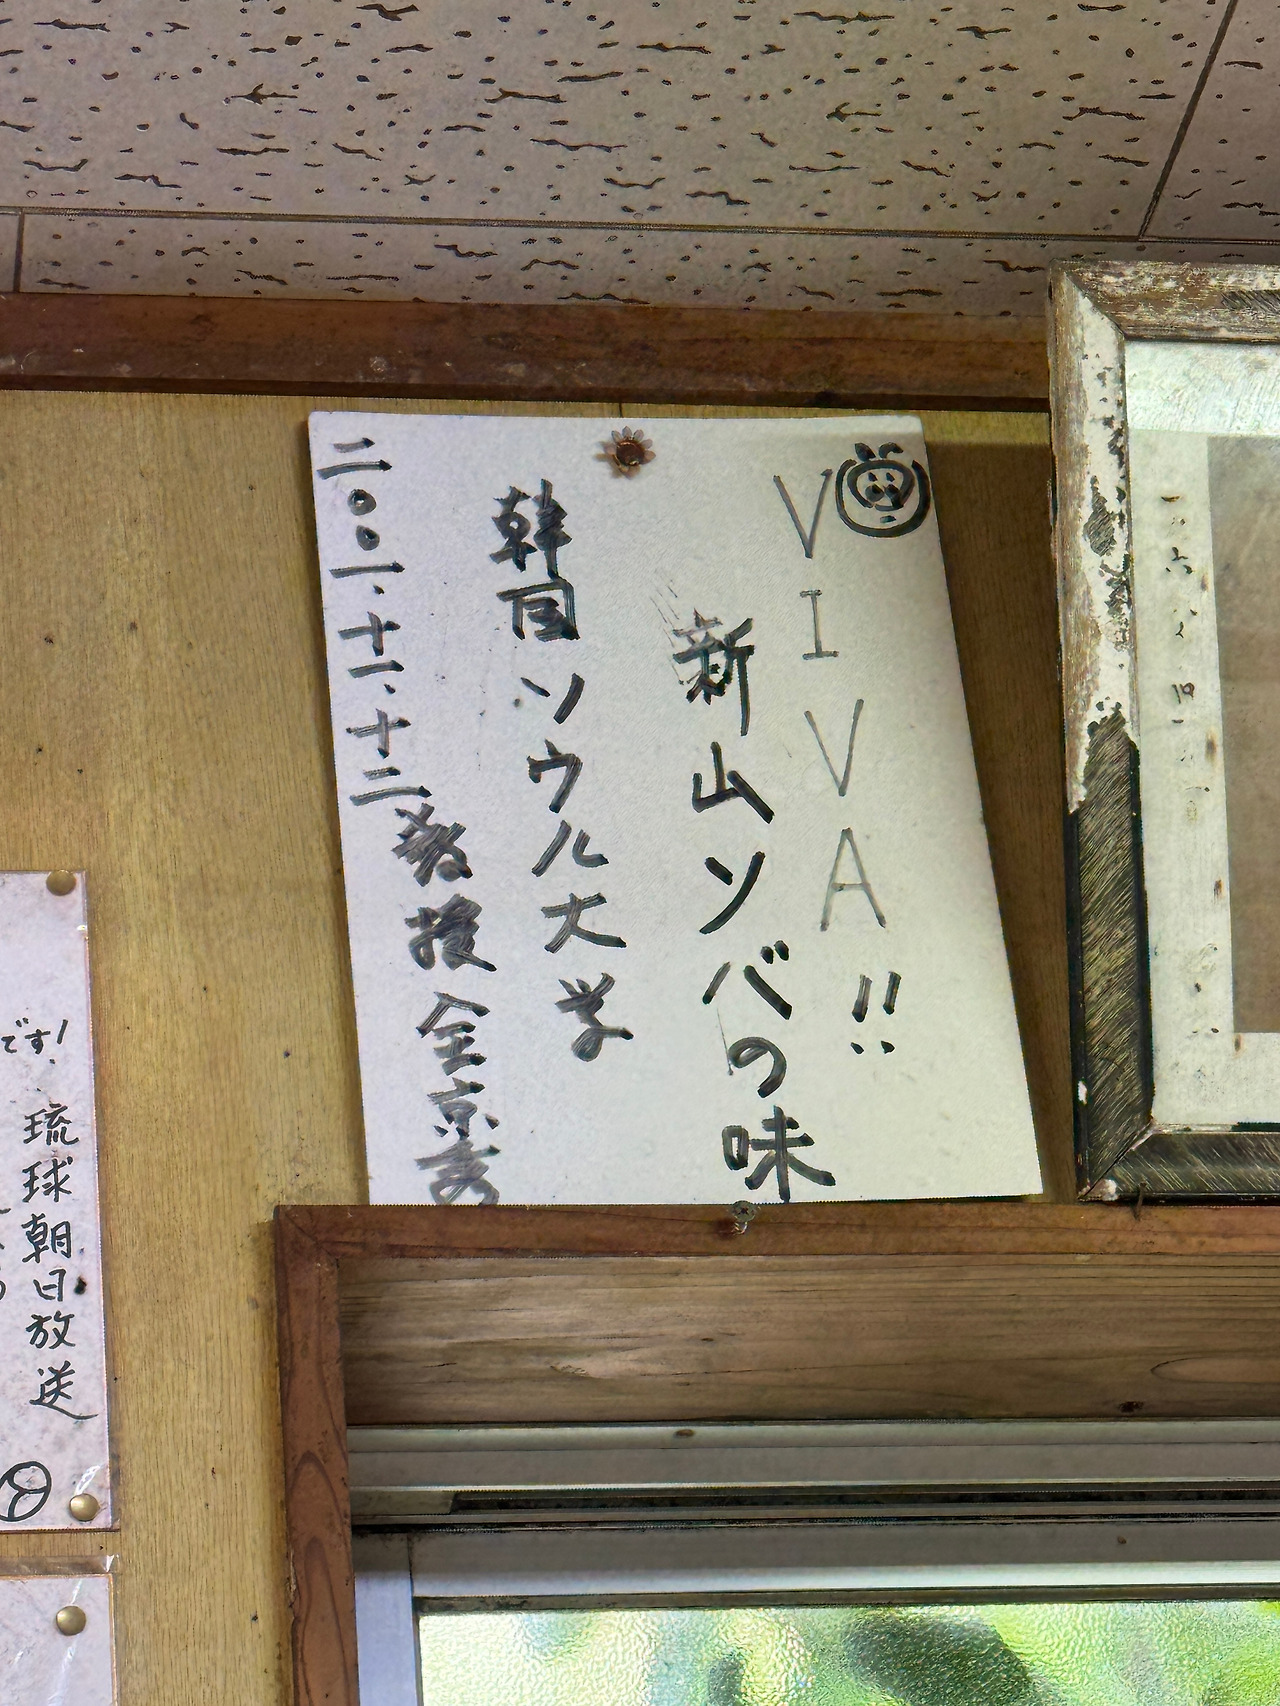 VIVA!!
新山ソバの味
韓国ソウル大学
教授 金京秀
二〇〇一.十一.十二
です!
琉球朝日放送